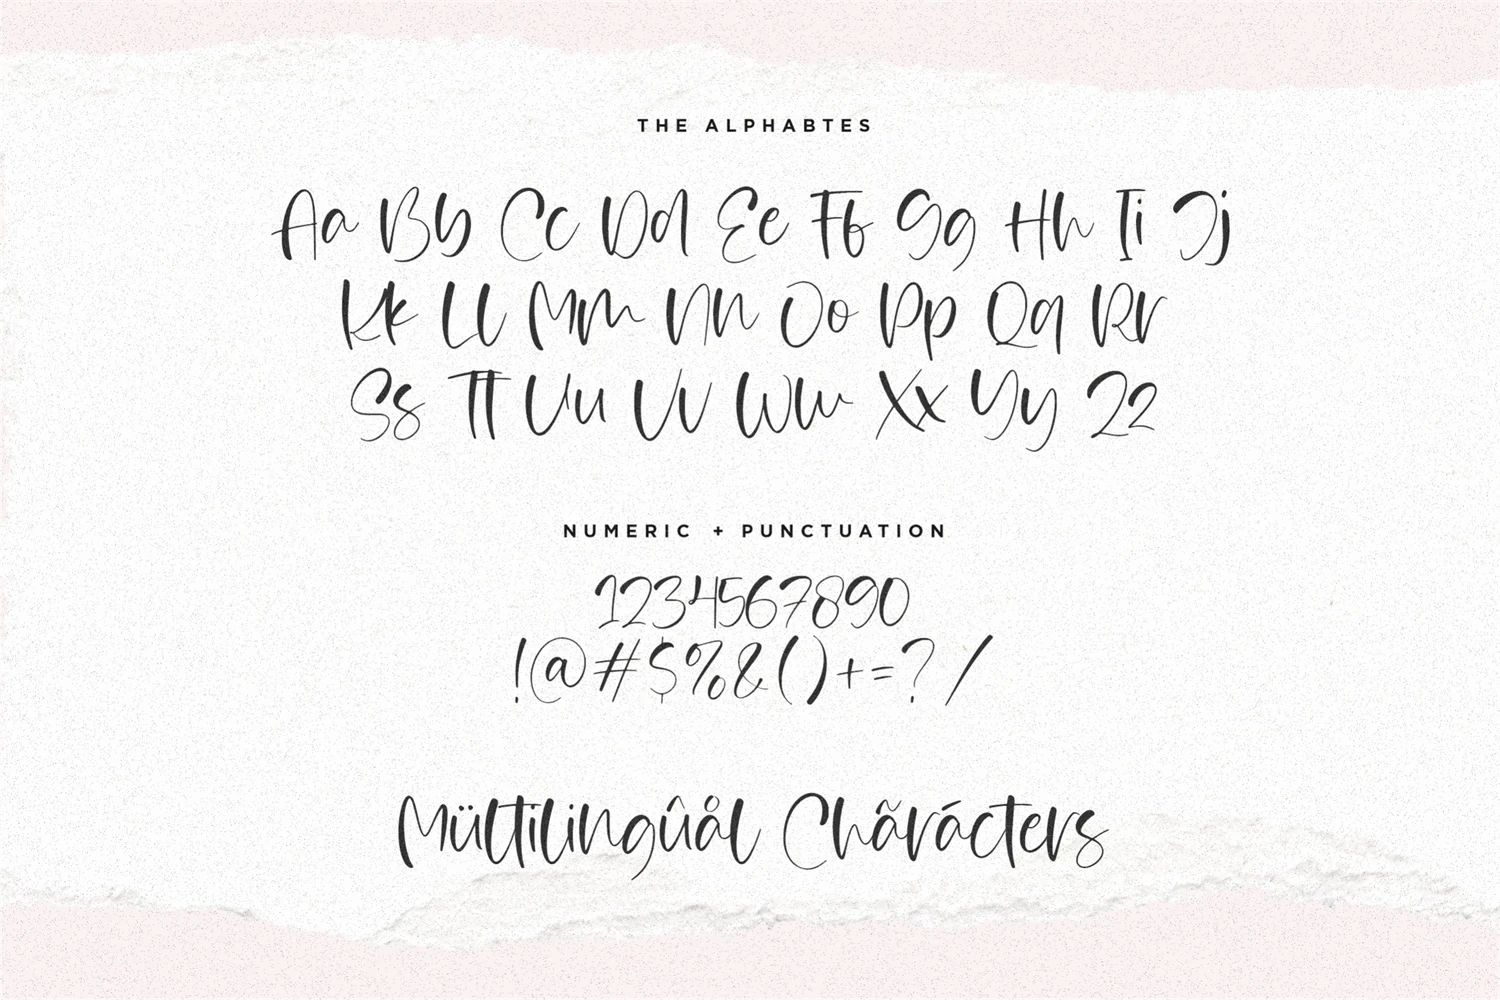 THE ALPHABTES
Aa Bb Cc Dd Ee Ff Gg Hh Ii Jj
Kk Ll Mm Nn Oo Pp Qq Rr
Ss Tt Uu Vv Ww Xx Yy Zz
NUMERIC + PUNCTUATION
1234567890
!@#$%&()+=?/
Mültilingûål Chãrácters